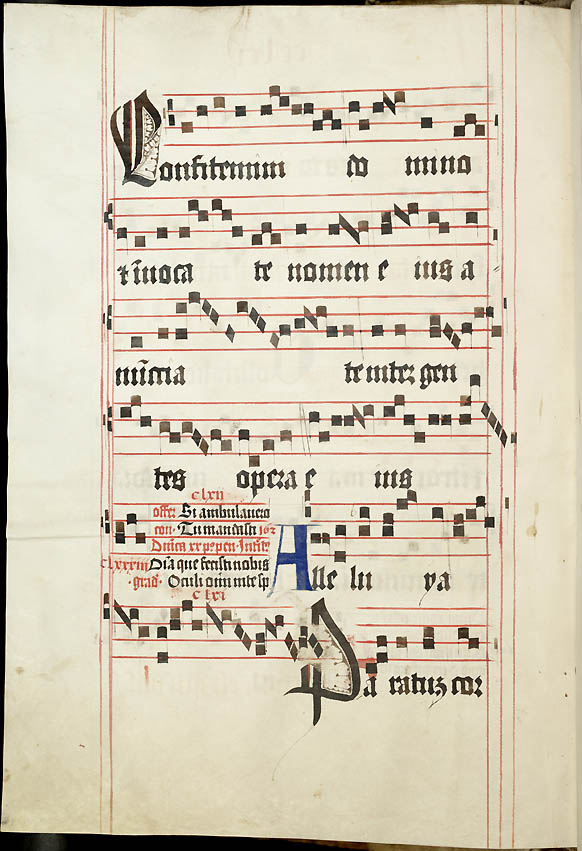 Confitemini do mino
⁊ īuoca te nomen e ius a
nūcia te inter gen
tes opera e ius
clxii
offer Si ambulauero
com Tu mandasti
Dnīca xx p⁹ pen
clxxxiiii Oīa que fecisti nobis
grad Oculi oīm in te sp
clxi
Alle lu ya
Pa ratuz cor